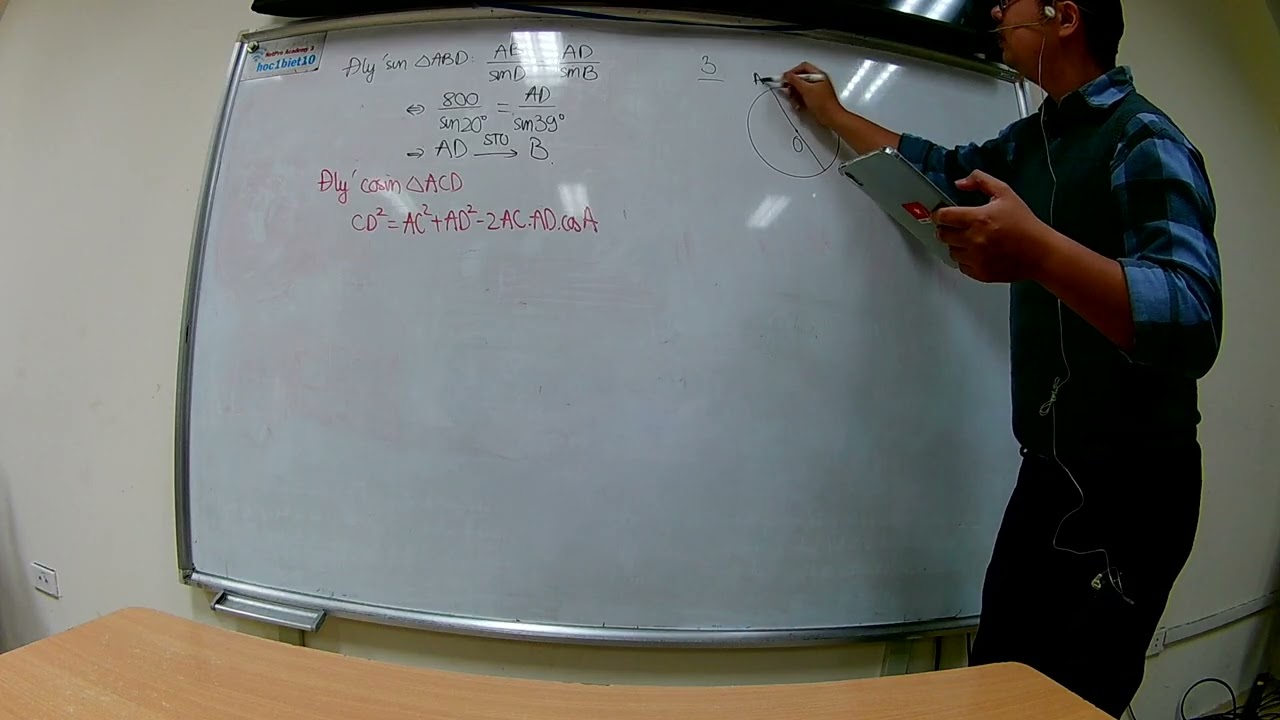 hoc1biet10
Đlý sin △ABD: AB/sinD = AD/sinB
⇔ 800/sin20° = AD/sin39°
⇒ AD STO→ B.
Đlý cosin △ACD
CD² = AC² + AD² - 2AC.AD.cosA
3
A
O